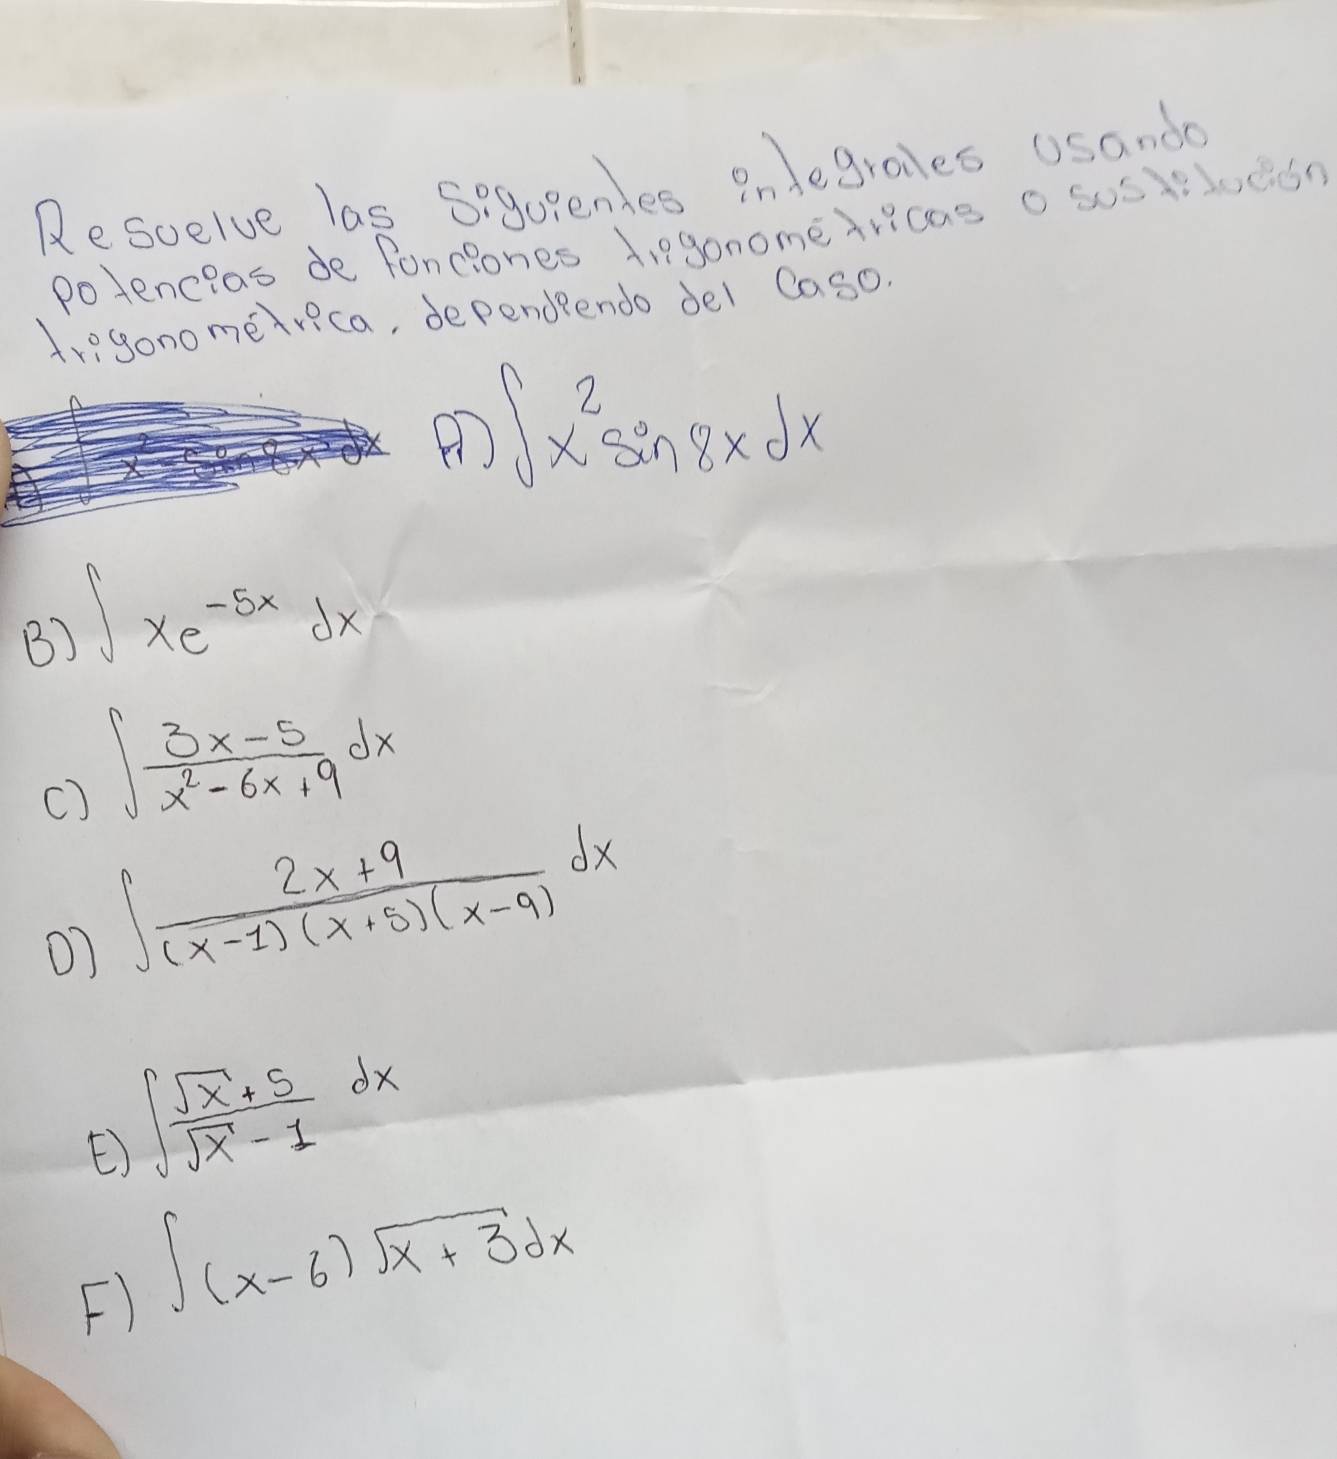 Resuelve las siguientes integrales usando
potencias de funciones trigonométricas o sustitución
trigonométrica, dependiendo del caso.
∫ x² sin 8x dx A) ∫ x² sin 8x dx
B) ∫ x e^(-5x) dx
C) ∫ (3x-5)/(x²-6x+9) dx
D) ∫ (2x+9)/((x-1)(x+5)(x-9)) dx
E) ∫ (√x+5)/(√x-1) dx
F) ∫ (x-6)√(x+3) dx